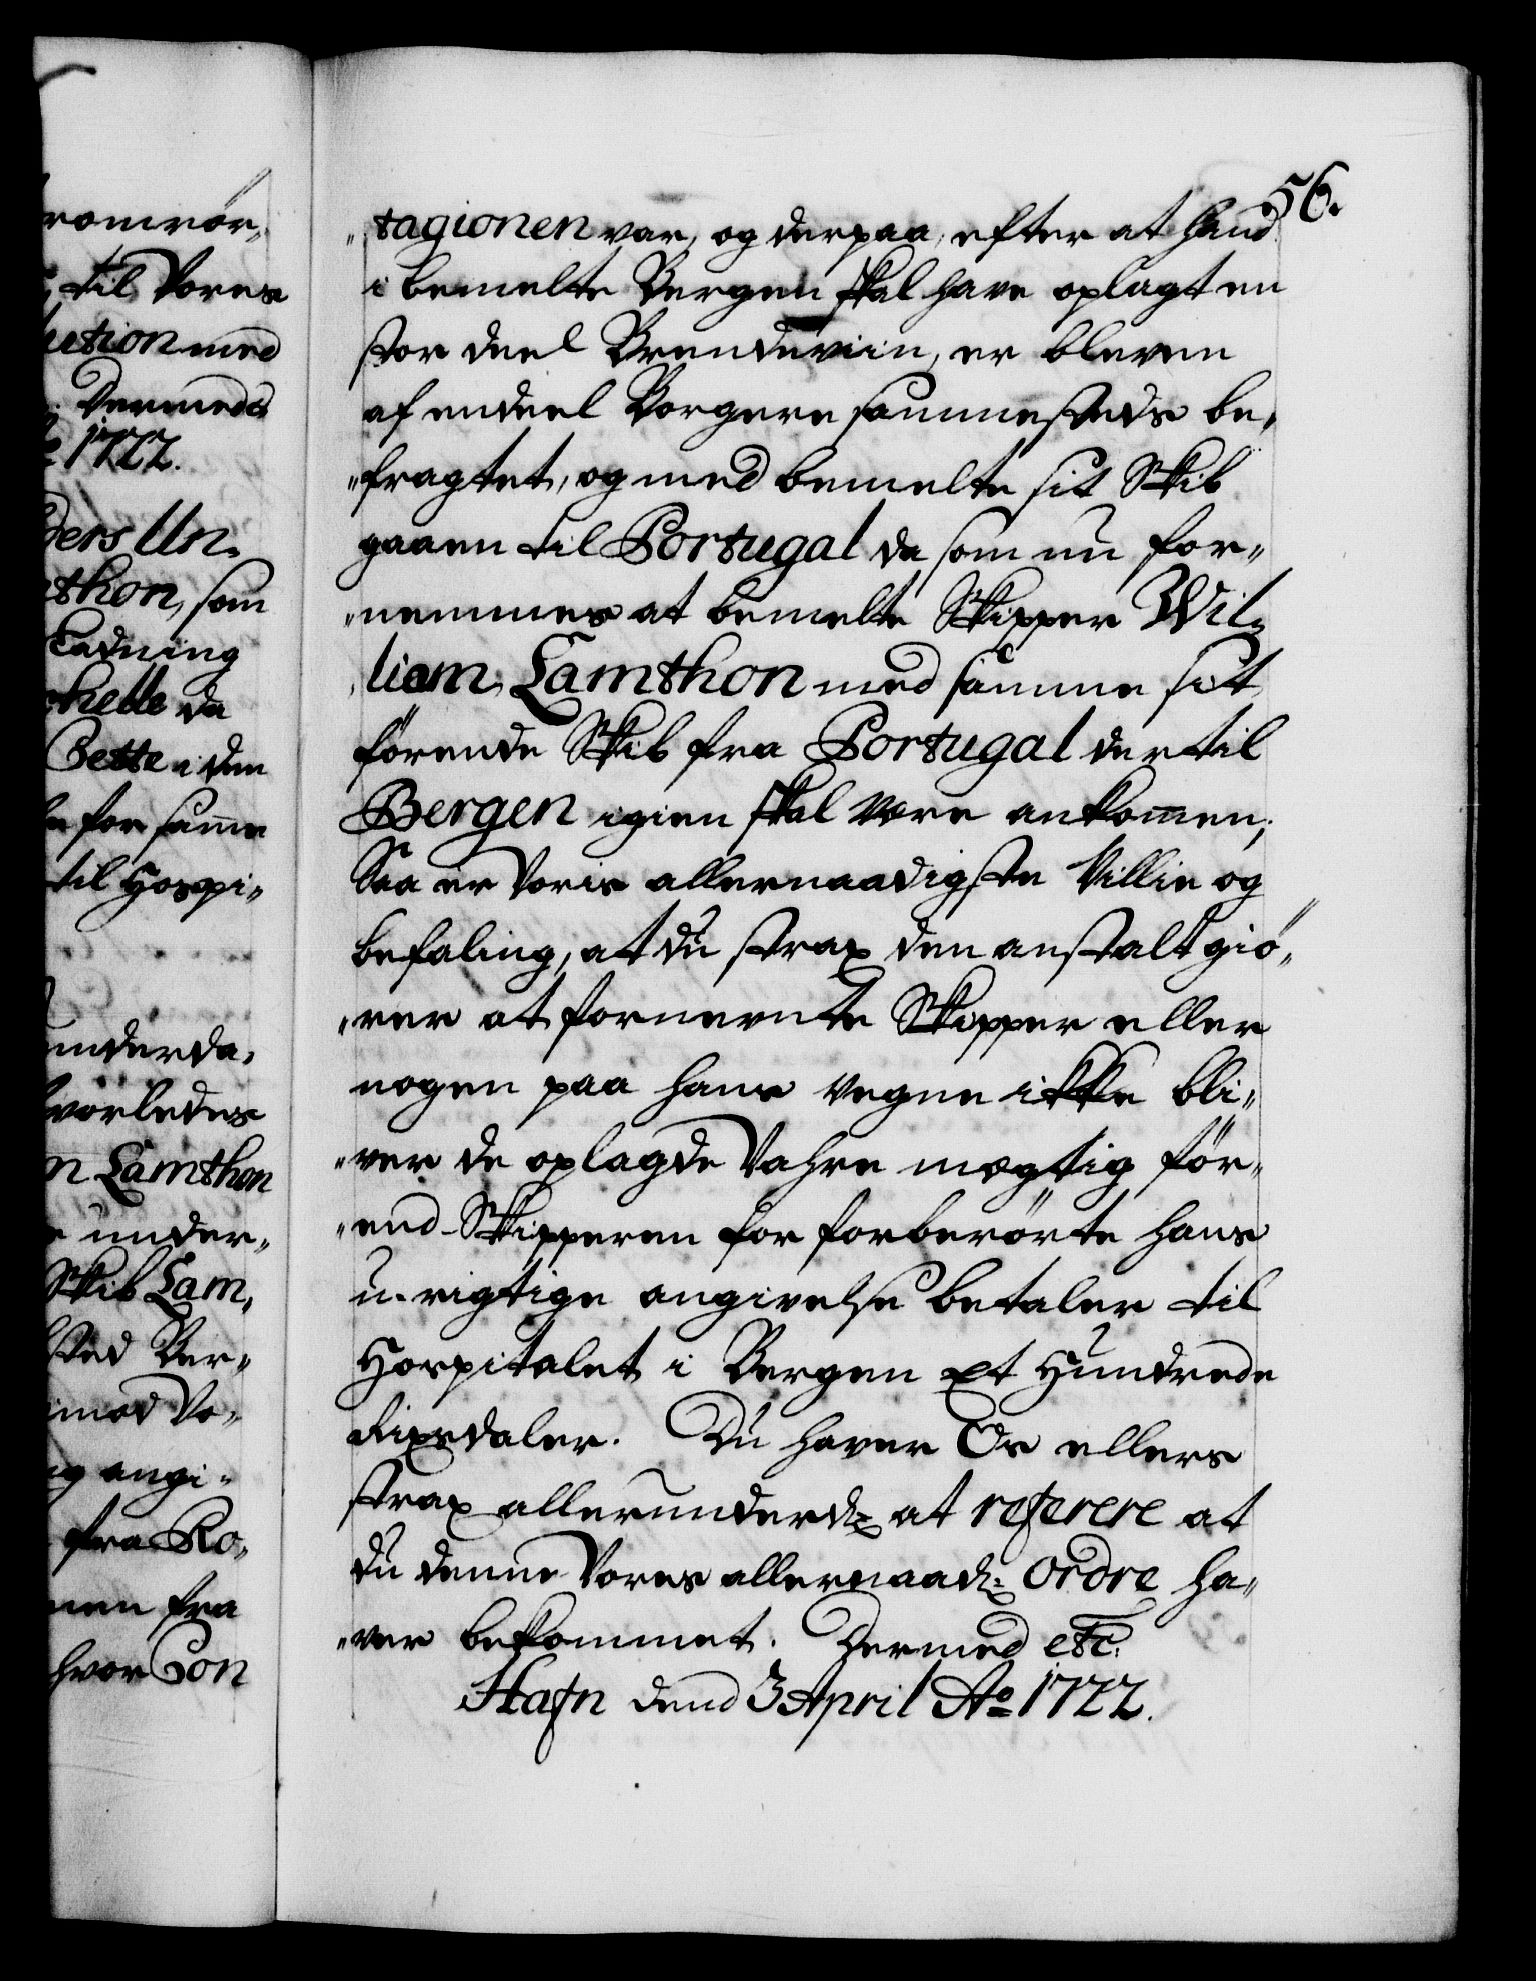 romrör,
til Vores
ution med
Dermeds
1722.
ders Un,
thon, som
Ladning
chelle da
Cette i den
for same
til Hospi„
underda,
hvorledes
n Lamthon
under„
Skib Lam,
sted Ber„
imod Vo„
og angi„
fra Ro,
men fra
hvor Con
56.
„tagionen var, og derpaa, efter at hand
i bemelte Bergen skal have oplagt en
stor deel Brendeviin, er bleven
af endeel Borgere sammesteds be,
„fragtet, og med bemelte sit Skib
gaaen til Portugal da som nu for„
„nemmes at bemelte Skipper Wil„
liam Lamthon med samme sit
förende Skib fra Portugal der til
Bergen igien skal være ankomen;
Saa er Voris allernaadigste Villie og
befaling, at du strax den anstalt giö„
„rer at fornevnte Skipper eller
nogen paa hans vegne ikke bli„
„ver de oplagde Vahre mægtig för„
„end Skipperen for forberörte hans
u-rigtige angivelse betaler til
Hospitalet i Bergen Et Hundrede
Rixdaler. Du haver Os ellers
strax allerunderd: at referere at
du denne Vores allernaad: ordre ha„
„ver bekommet. Dermed etc:
Hafn dend 3 April Ao 1722.